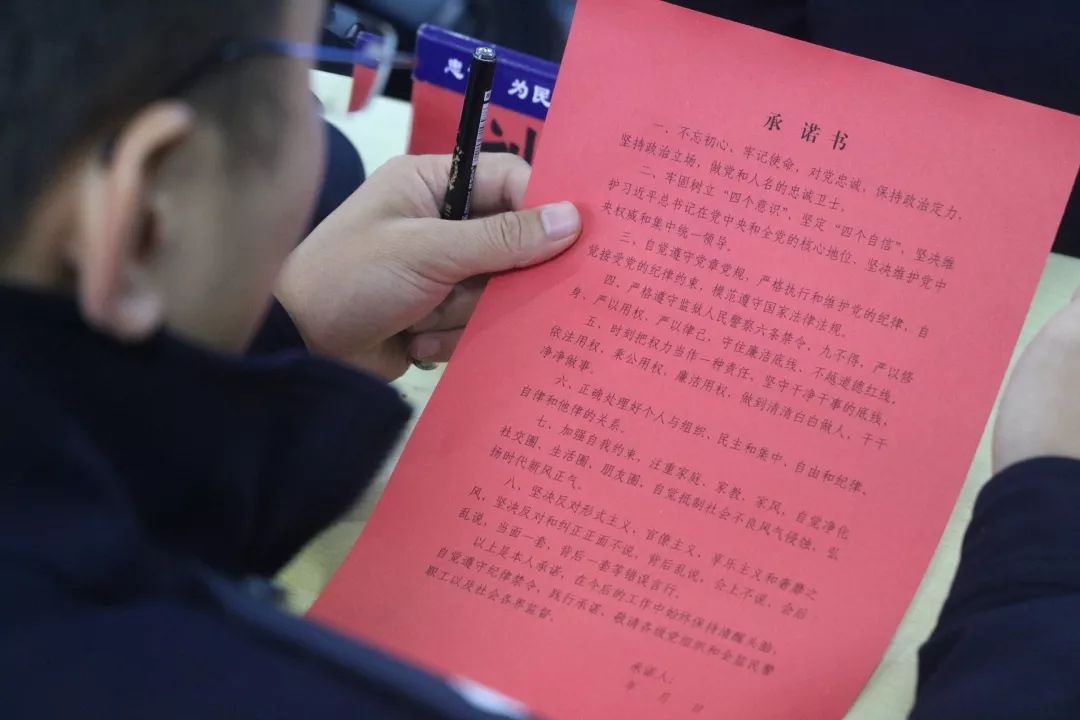 忠 为民
承诺书
一、不忘初心、牢记使命,对党忠诚,保持政治定力,
坚持政治立场,做党和人名的忠诚卫士。
二、牢固树立“四个意识”,坚定“四个自信”,坚决维
护习近平总书记在党中央和全党的核心地位、坚决维护党中
央权威和集中统一领导。
三、自觉遵守党章党规,严格执行和维护党的纪律,自
觉接受党的纪律约束,模范遵守国家法律法规。
四、严格遵守监狱人民警察六条禁令,九不得,严以修
身、严以用权,严以律己,守住廉洁底线、不越道德红线。
五、时刻把权力当作一种责任,坚守干净干事的底线,
依法用权、秉公用权、廉洁用权,做到清清白白做人、干干
净净做事。
六、正确处理好个人与组织、民主和集中、自由和纪律、
自律和他律的关系。
七、加强自我约束,注重家庭、家教、家风,自觉净化
社交圈、生活圈、朋友圈,自觉抵制社会不良风气侵蚀,弘
扬时代新风正气。
八、坚决反对形式主义、官僚主义、享乐主义和奢靡之
风,坚决反对和纠正正面不说,背后乱说,会上不说、会后
乱说,当面一套,背后一套等错误言行。
以上是本人承诺,在今后的工作中始终保持清醒头脑,
自觉遵守纪律禁令,践行承诺、敬请各级党组织和全监民警
职工以及社会各界监督。
承诺人:
年 月 日